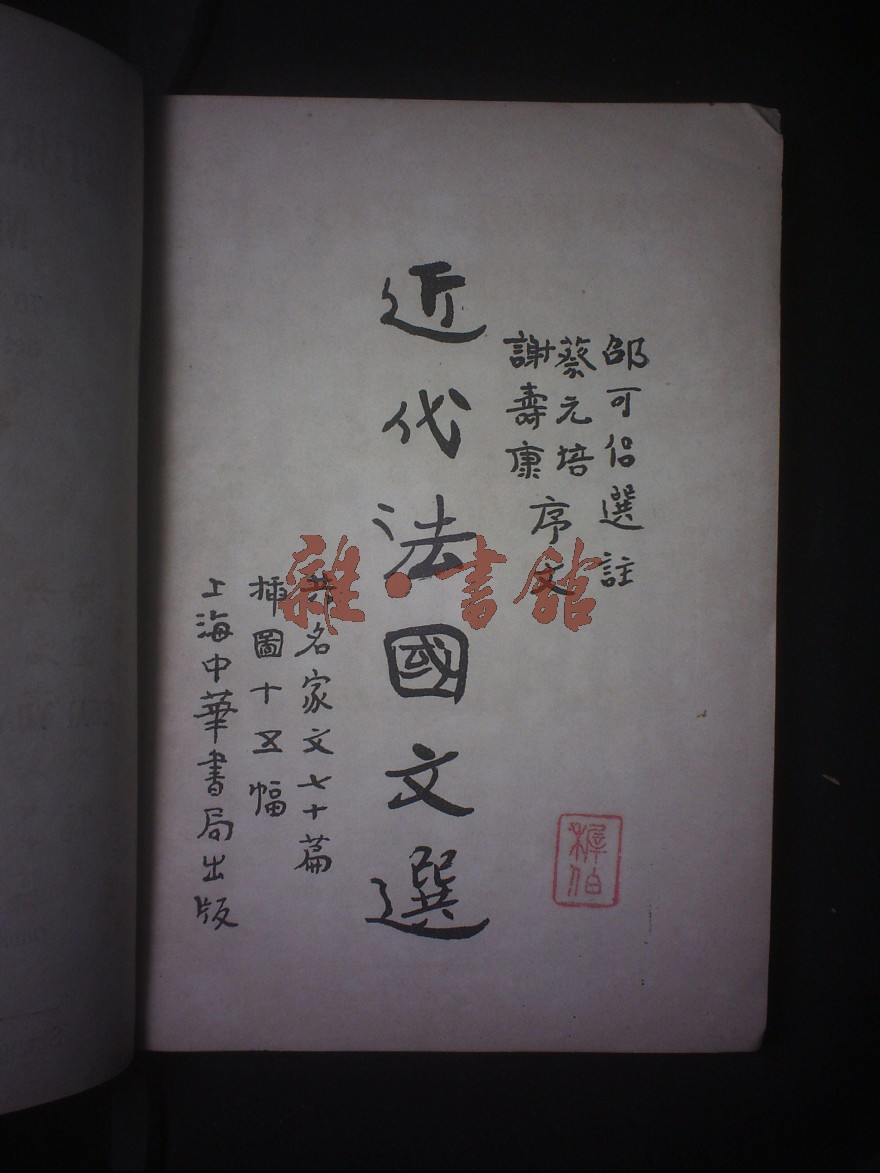 邵可侶選註
蔡元培
謝壽康
序文
近代法國文選
共名家文七十篇
插圖十五幅
上海中華書局出版
雜·書館